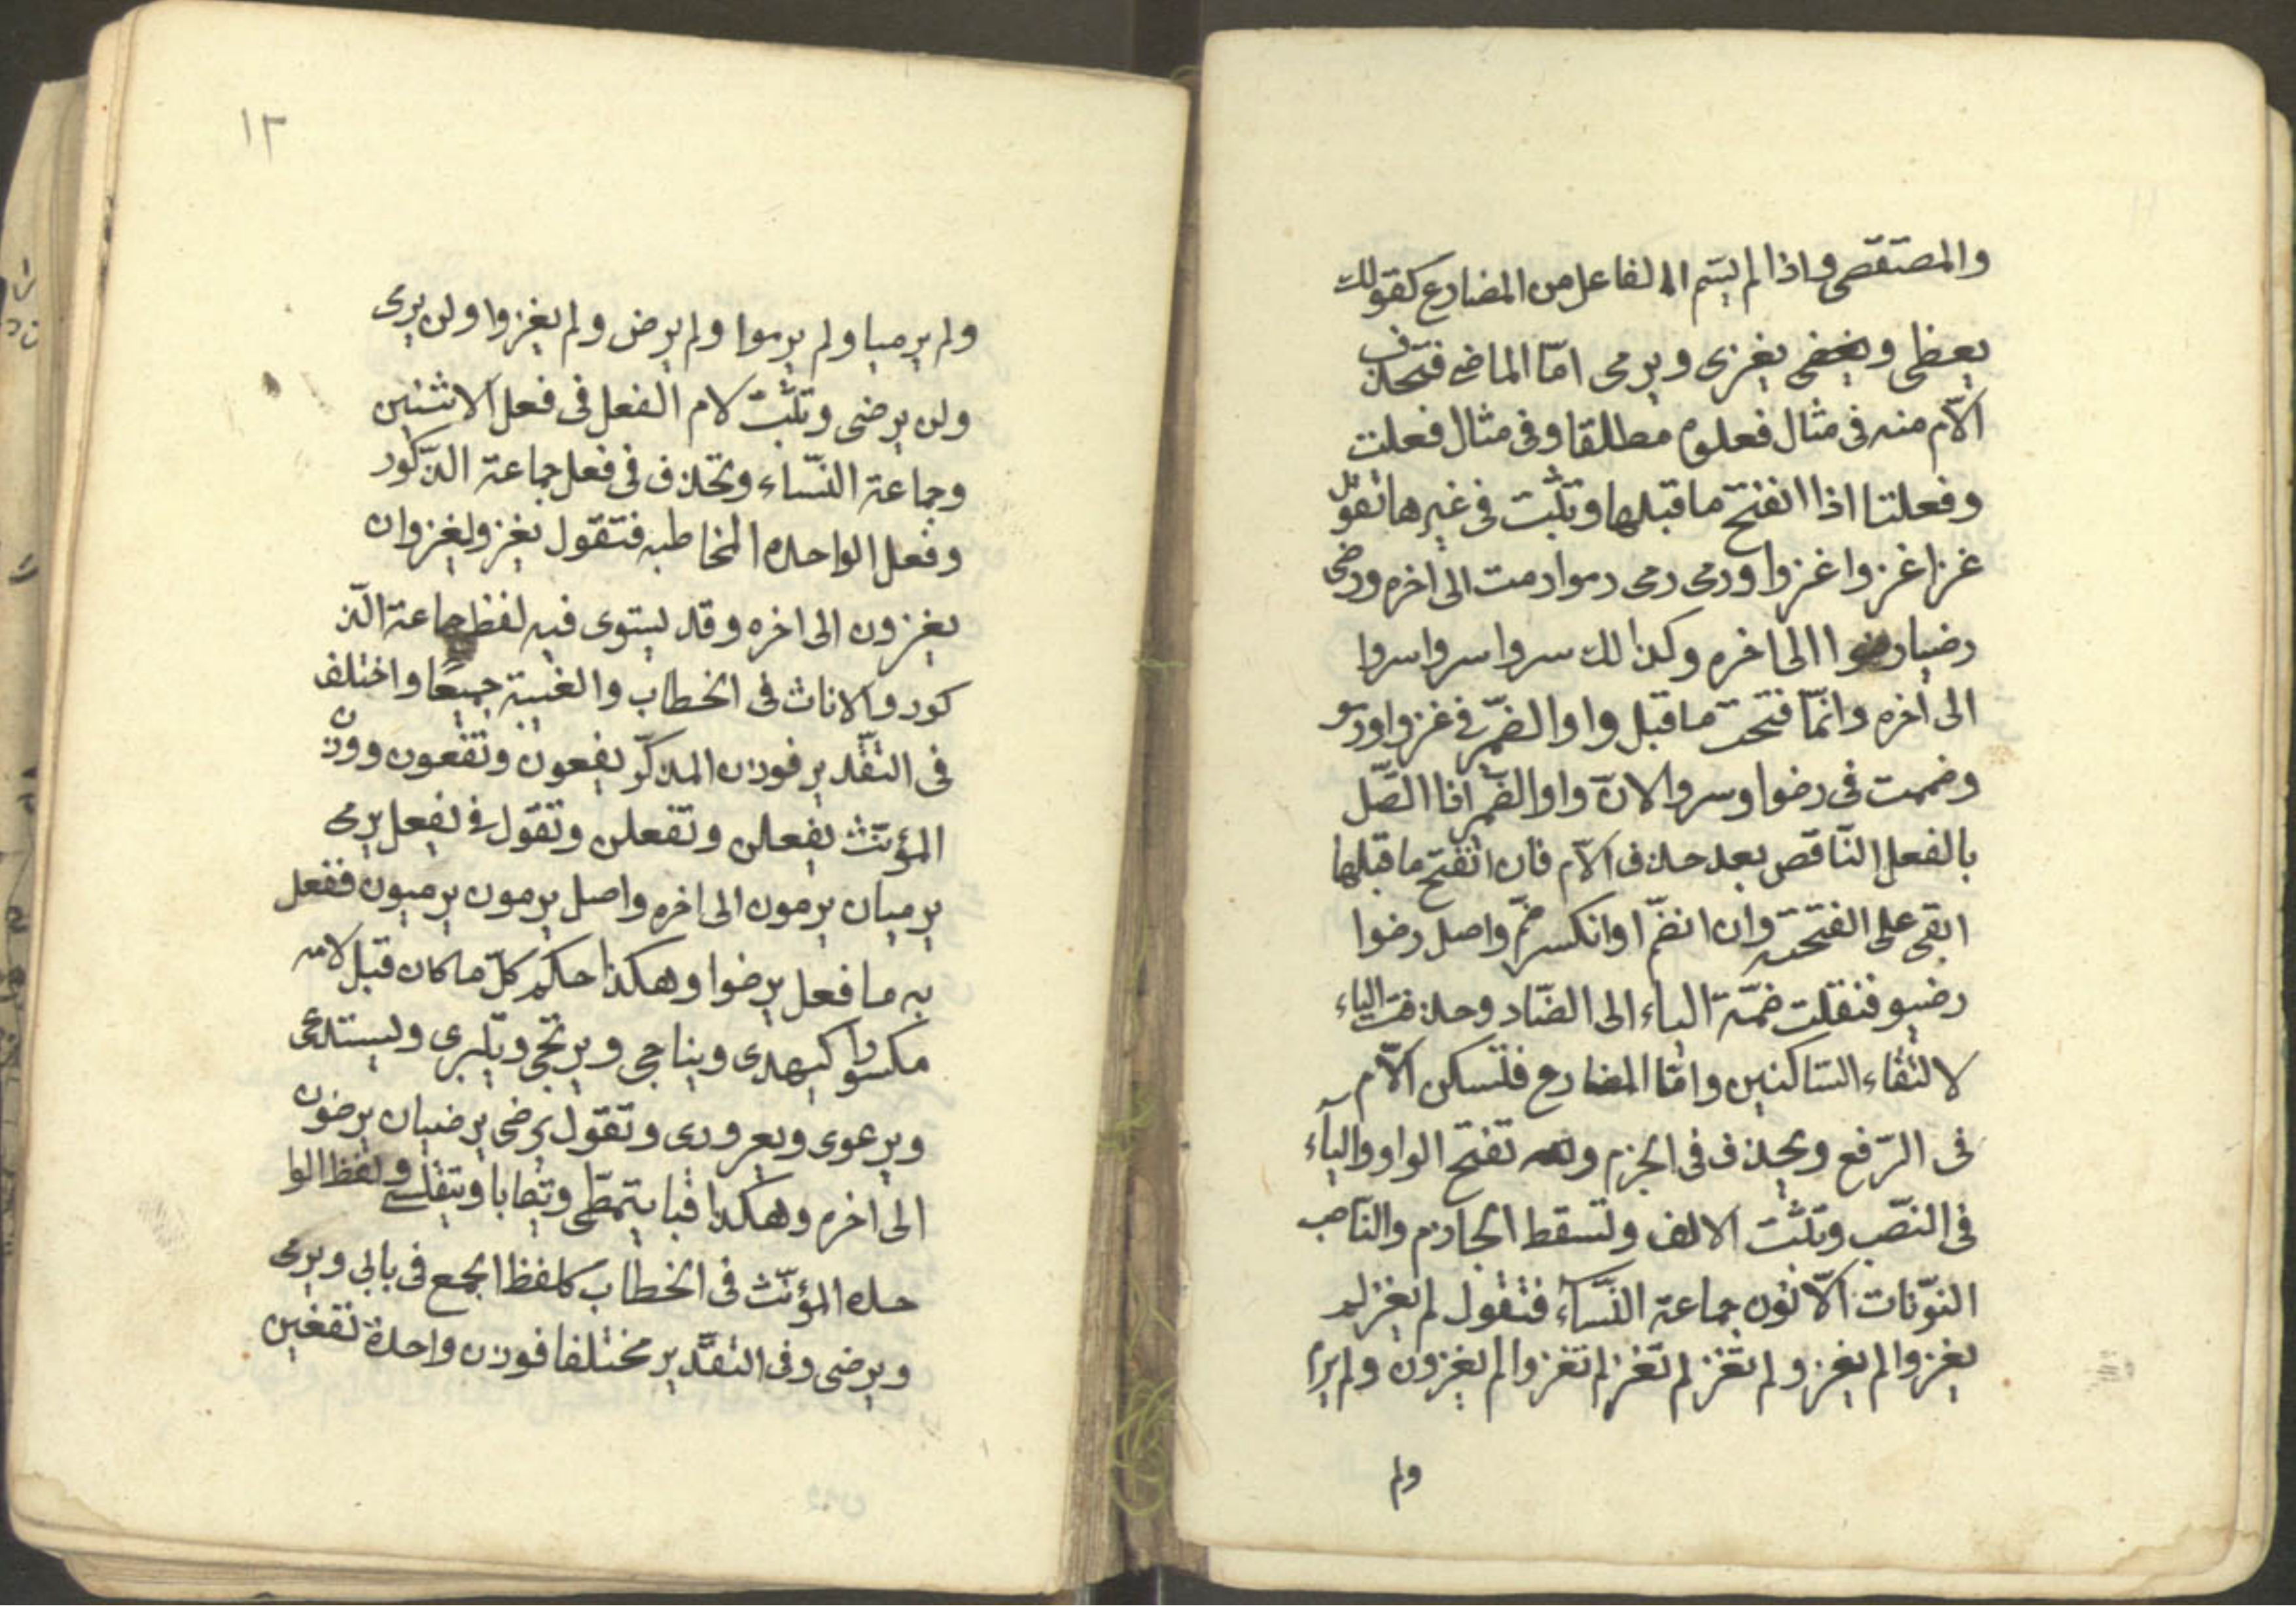 والمصتقصى واذا لم يسّم الفاعل من المضارع كقولك
يعطى ويخفى يغزى ويرمى امّا الماضى فتحذف
الآم منه فى مثال فعلوم مطلقا وفى مثال فعلت
وفعلتا اذا انفتح ما قبلها وتثبت فى غيرها تقول
غزا غزوا غزوا ورمى رمى رموا رمت الى اخره ورضى
رضيا رضوا الى اخره وكذالك سروا سروا سروا
الى اخره وانّما فتحت ما قبل واوا الضّمر فى غزوا ورمو
وضممت فى رضوا وسروا لانّ واوا الضّمر اذا اتّصل
بالفعل النّاقص بعد حذف الآم فان انفتح ما قبلها
ابقى على الفتحة وان انضّم او انكسر ضمّ واصل رضوا
رضيو فنقلت ضمّة الياء الى الضّاد وحذفت الياء
لالتقاء السّاكنين وامّا المضارع فتسكن الآم
فى الرّفع ويحذف فى الجزم وتفتح الواو والياء
فى النصّب وتثبت الالف وتسقط الجازم والنّاصب
النوّنات الّا نون جماعة النّسآء فتقول لم يغز لم
يغزوا لم يغزو لم تغز لم تغز لم تغزوا لم يغزون ولم يرم
ولم
١٢
ولم يرميا ولم يرموا ولم يرض ولم يغزوا ولن يرى
ولن يرضى وتثبت لام الفعل فى فعل الاثنين
وجماعة النّساء وتحذف فى فعل جماعة الذّكور
وفعل الواحده المخاطبه فتقول يغزو يغزوان
يغزون الى اخره وقد يستوى فيه لفظ جماعة الّذ
كور والاناث فى الخطاب والغيبة جميعًا واختلف
فى التقّدير فوزن المذكّر يفعون وتفعون ووزن
المؤنّث يفعلن وتفعلن وتقول فى يفعل يرمى
يرميان يرمون الى اخره واصل يرمون يرميون ففعل
به ما فعل يرضوا وهكذا حكم كلّ ما كان قبل لامه
مكسورا كيهدى ويناجى ويرتجى ويلبرى ويستدعى
ويرعوى ويعرورى وتقول يرضى يرضيان يرضون
الى اخره وهكذا قيا يتمطّى ويتصابا ويتقلسى ولفظ الوا
حده المؤنّث فى الخطاب كلفظ الجمع فى بابى ويرمى
ويرضى وفى التقّدير مختلفا فوزن واحدة تفعين